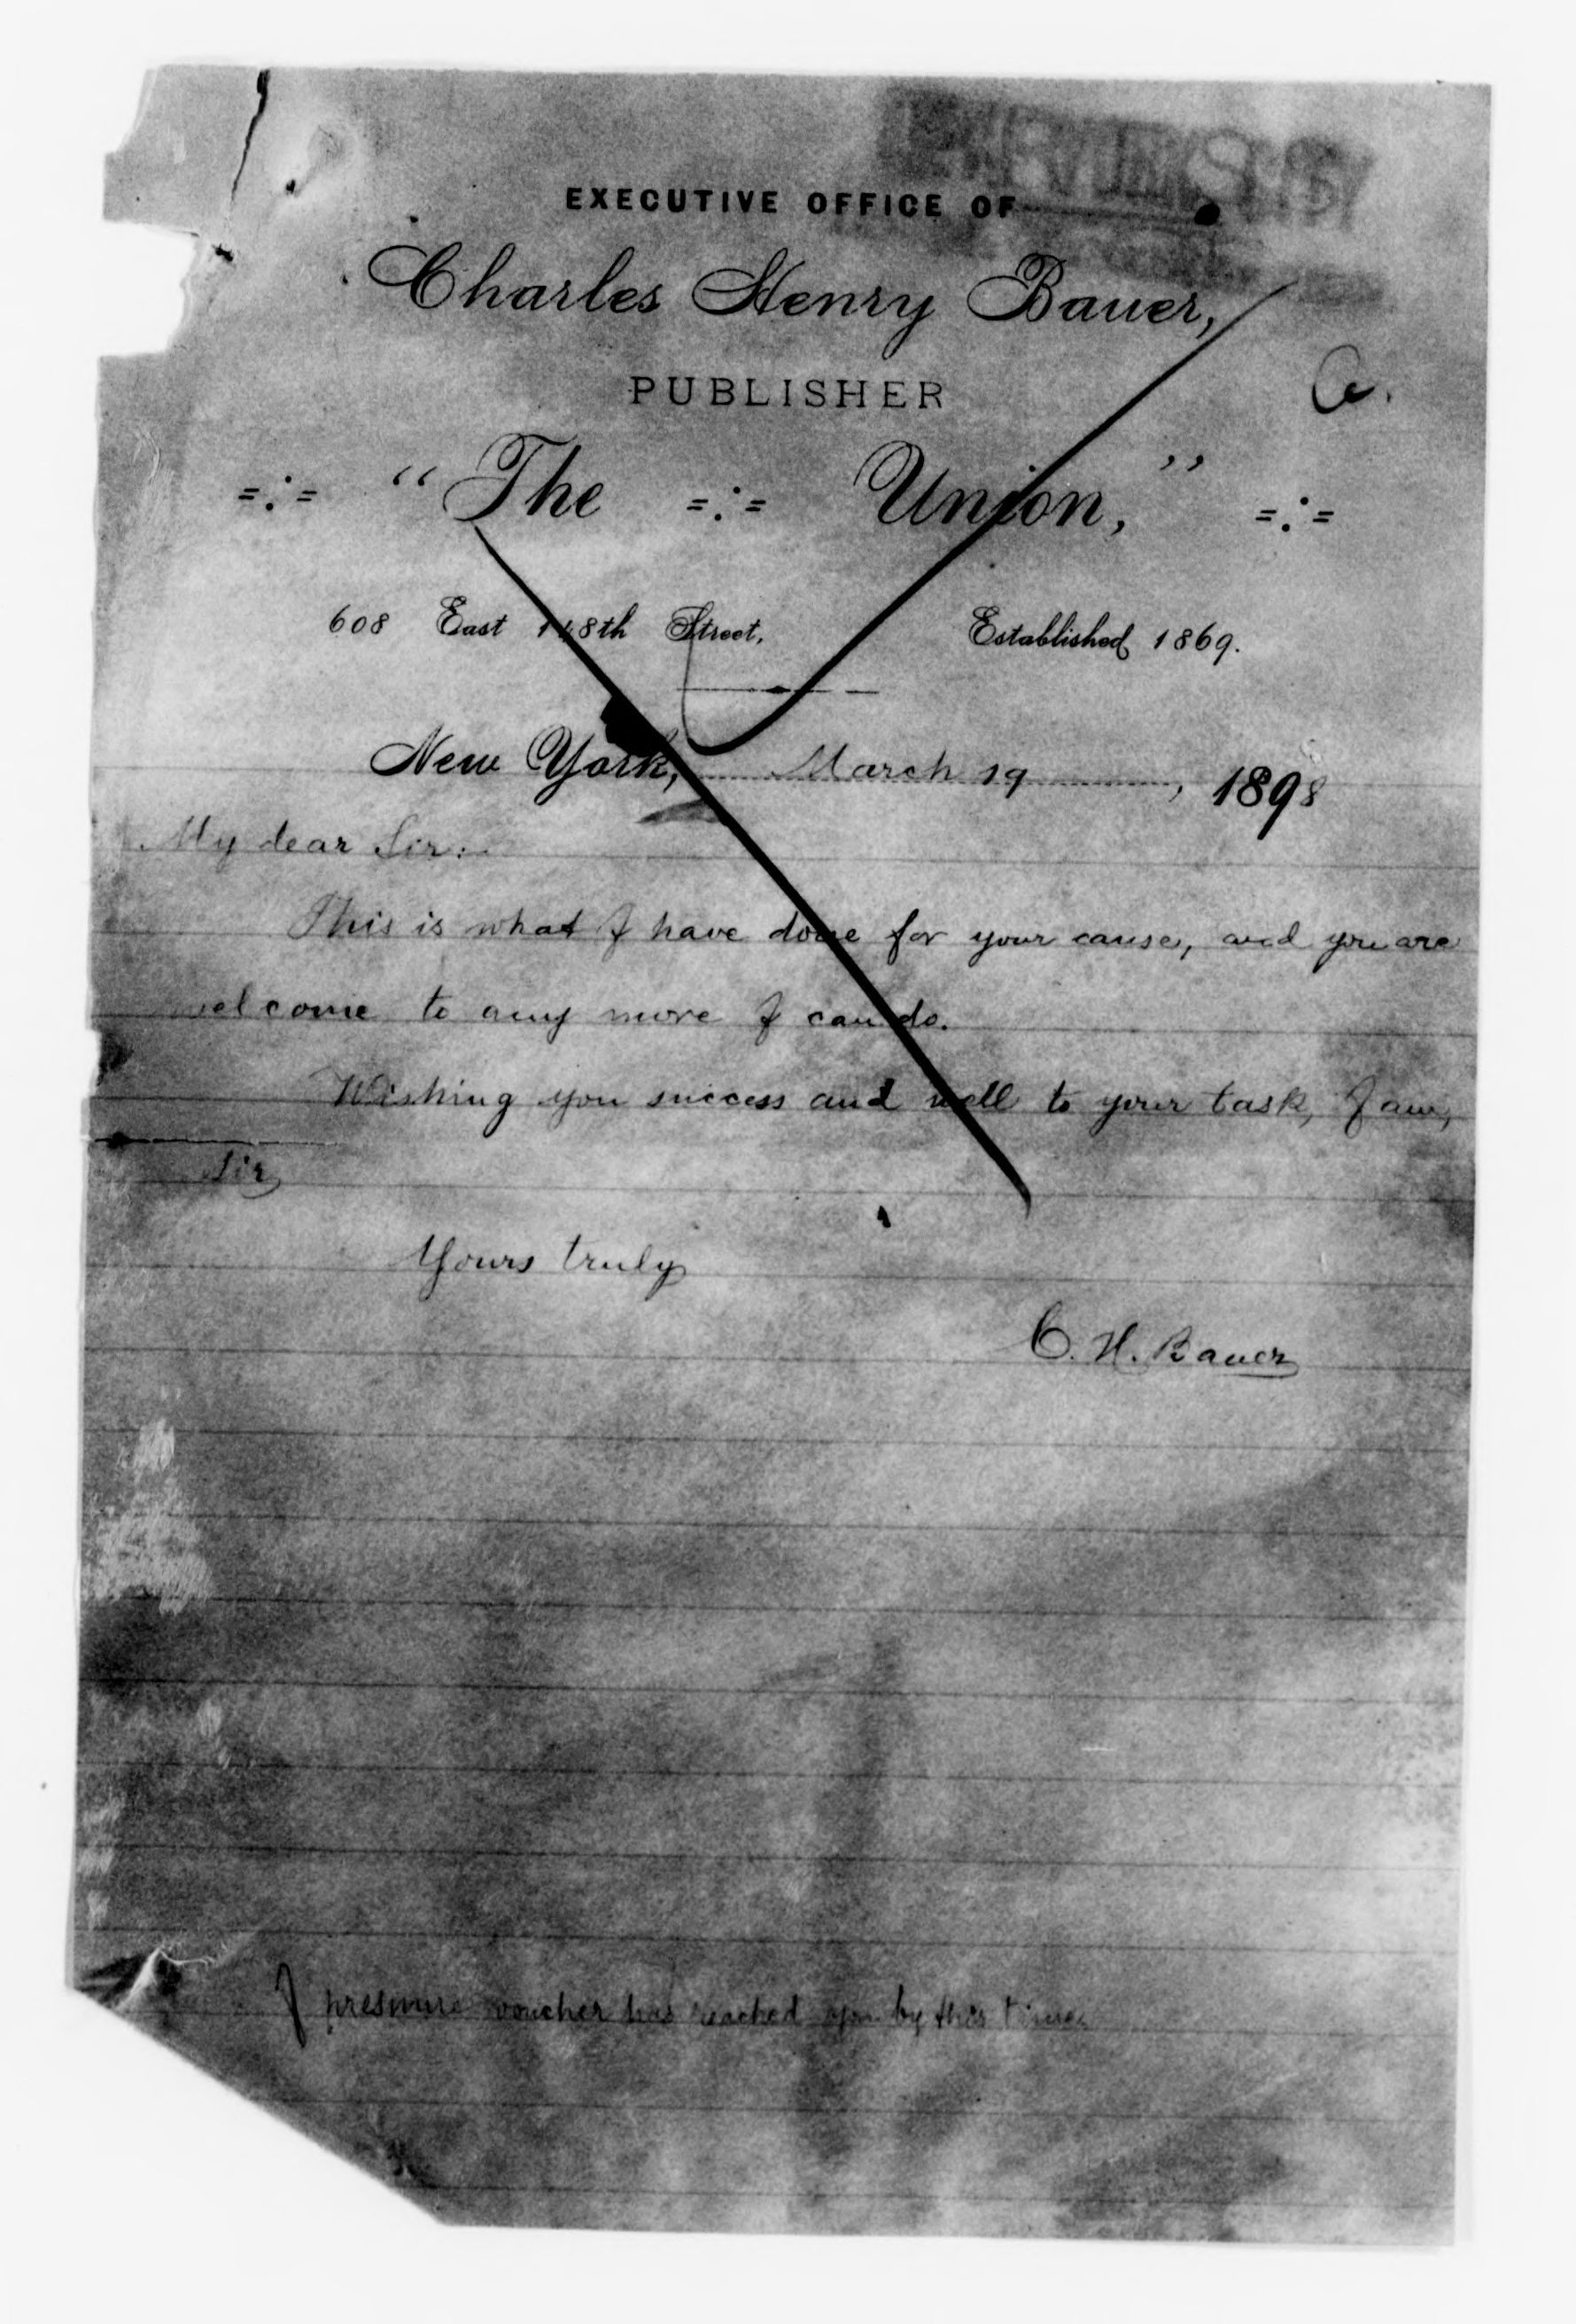 EXECUTIVE OFFICE OF
Charles Henry Bauer,
PUBLISHER
C.
=:= "The =:= Union," =:=
608 East 148th Street, Established 1869.
New York, March 19, 1898
My dear Sir:
This is what I have done for your cause, and you are
welcome to any more I can do.
Wishing you success and well to your task, I am,
Sir,
Yours truly
C. H. Bauer
I presume voucher has reached you by this time.